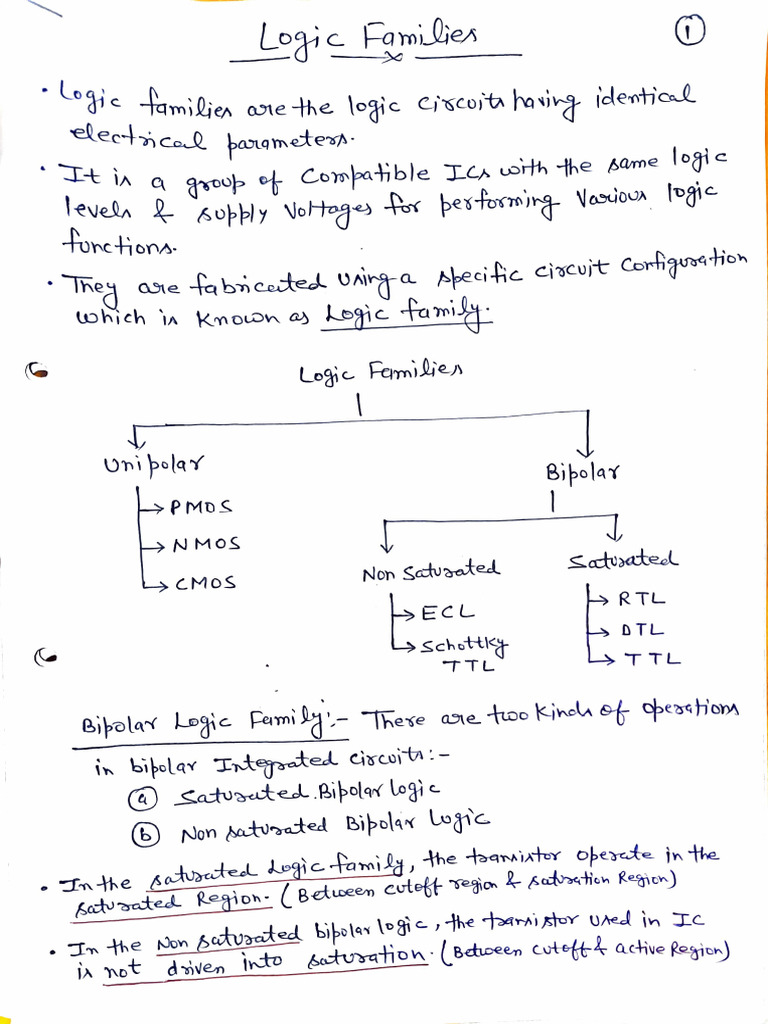 Logic Families
1
• Logic families are the logic circuits having identical
electrical parameters.
• It is a group of Compatible ICs with the same logic
levels & supply Voltages for performing Various logic
functions.
• They are fabricated using a specific circuit configuration
which is known as Logic family.
Logic Families
Unipolar
Bipolar
PMOS
NMOS
CMOS
Non Saturated
Saturated
ECL
Schottky
TTL
RTL
DTL
TTL
Bipolar Logic Family:- There are two kinds of operations
in bipolar Integrated circuits:-
(a) Saturated Bipolar logic
(b) Non saturated Bipolar Logic
• In the saturated Logic family, the transistor operate in the
saturated Region. (Between cutoff region & saturation Region)
• In the Non saturated bipolar logic, the transistor used in IC
is not driven into saturation. (Between cutoff & active Region)